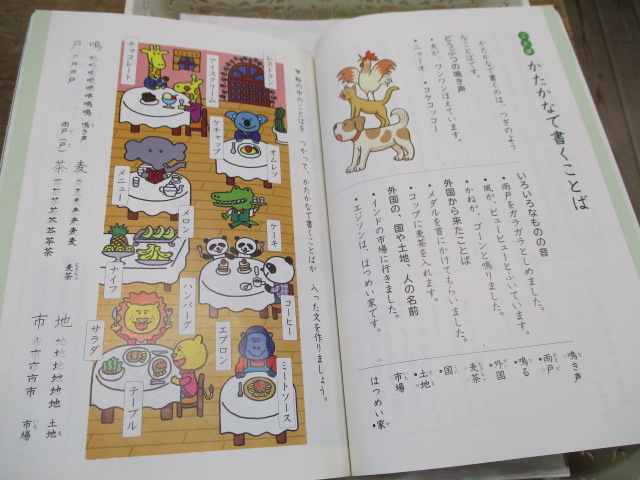 かたかなで書くことば
かたかなで書くのは、つぎのような
ことばです。
どうぶつの鳴き声
・犬が、ワンワンほえています。
・コケコッコー
・ニャーオ
いろいろなものの音
・雨戸をガラガラとしめました。
・風が、ビュービューとふいています。
・かねが、ゴーンと鳴りました。
外国から来たことば
・メダルを首にかけてもらいました。
・コップに麦茶を入れます。
外国の、国や土地、人の名前
・インドの市場に行きました。
・エジソンは、はつめい家です。
鳴き声
・雨戸
・鳴る
・外国
麦茶
・国
・土地
市場
はつめい家
▼絵の中のことばを つかって、かたかなで書くことばが 入った文を作りましょう。
レストラン
アイスクリーム
チョコレート
オムレツ
ケチャップ
メニュー
ケーキ
メロン
ナイフ
コーヒー
ハンバーグ
サラダ
ミートソース
エプロン
テーブル
鳴
鳴き声
戸
雨戸
(戸)
麦
麦茶
茶
地
土地
市
市場